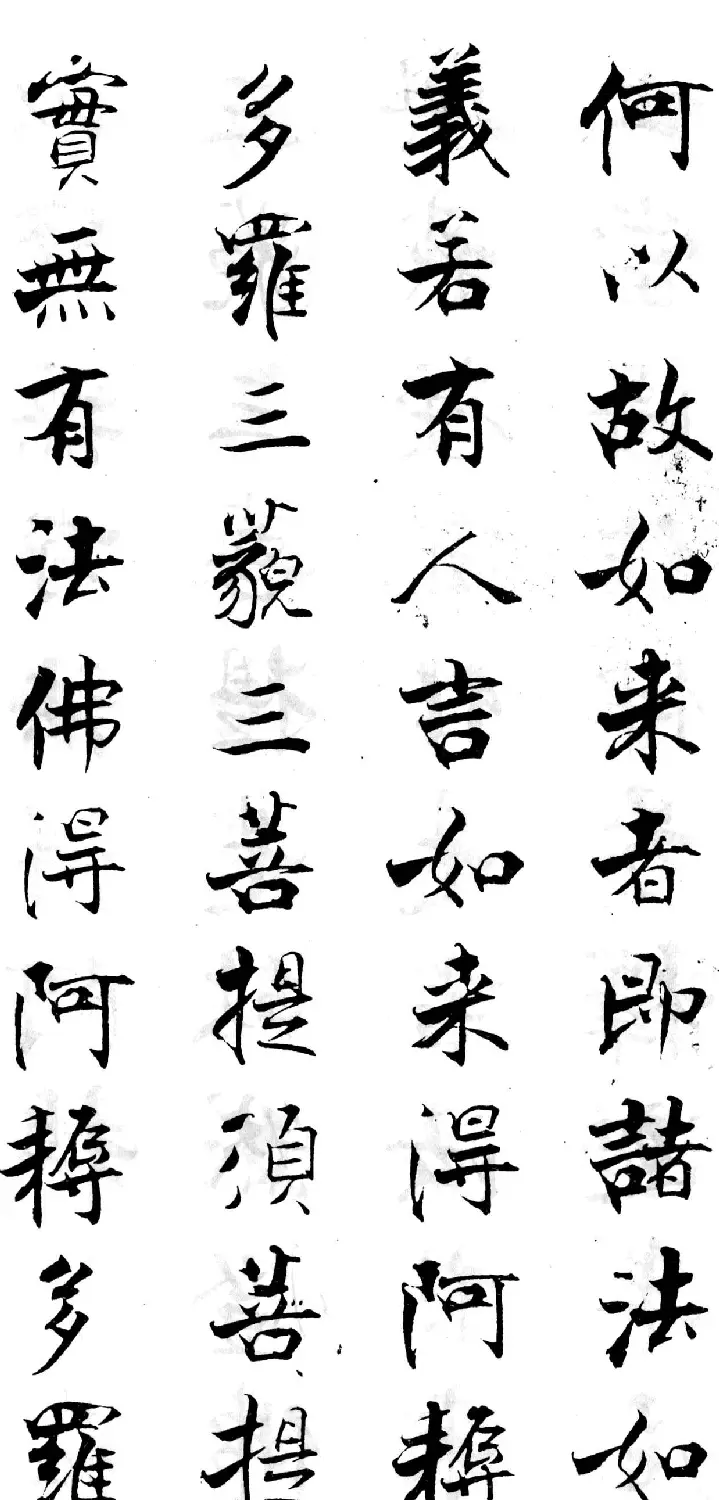 何以故如来者即諸法如
義若有人言如来得阿耨
多羅三藐三菩提須菩提
實無有法佛得阿耨多羅